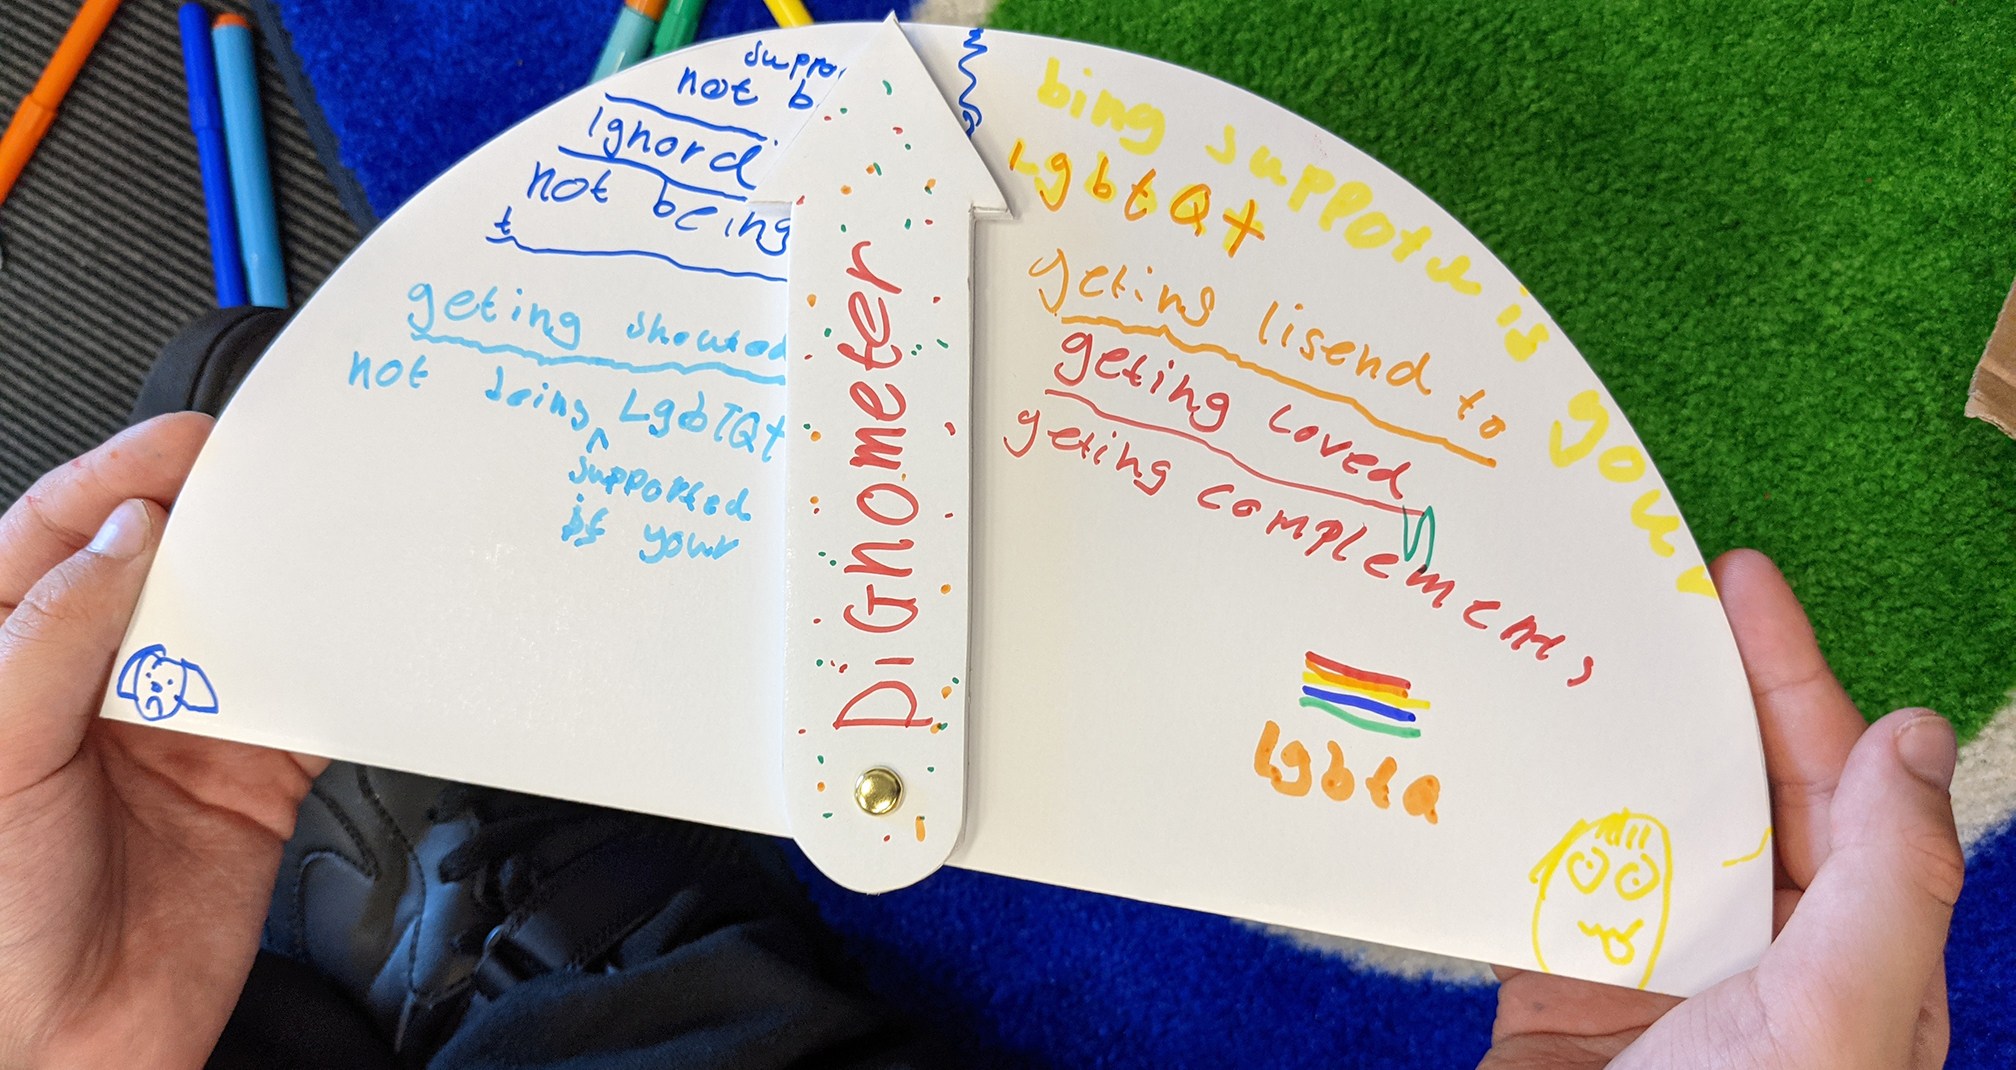 suppo
not b
ignord
not being
geting showted
not being LgbTQt
^
supported
if your
DiGNometer
bing supporte is your
LgbtQt
geting lisend to
geting loved
geting complements
Lgbta